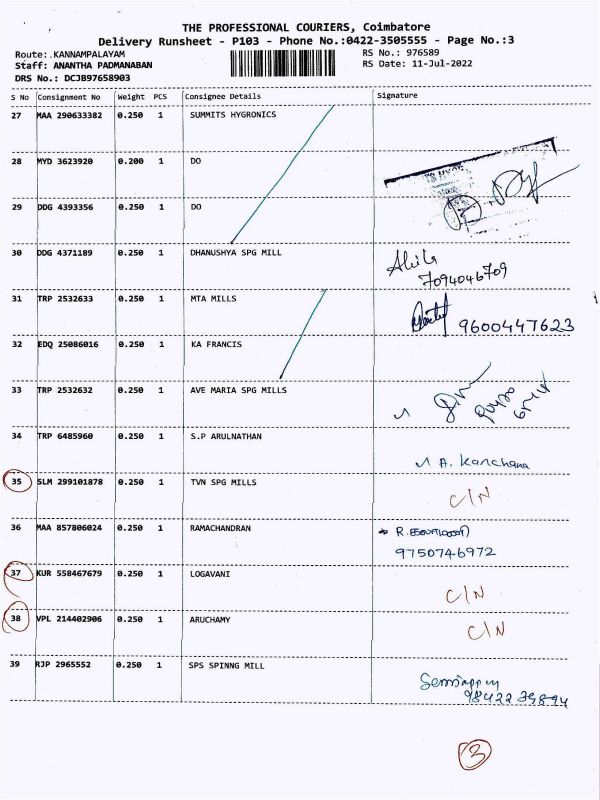 THE PROFESSIONAL COURIERS, Coimbatore
Delivery Runsheet - P103 - Phone No.:0422-3505555 - Page No.:3
Route:.KANNAMPALAYAM RS No.: 976589
Staff: ANANTHA PADMANABAN RS Date: 11-Jul-2022
DRS No.: DCJB97658903
S No Consignment No Weight PCS Consignee Details Signature
27 MAA 290633382 0.250 1 SUMMITS HYGRONICS
28 MYD 3623920 0.200 1 DO
29 DDG 4393356 0.250 1 DO
30 DDG 4371189 0.250 1 DHANUSHYA SPG MILL
7094046709
31 TRP 2532633 0.250 1 MTA MILLS
9600447623
32 EDQ 25086016 0.250 1 KA FRANCIS
33 TRP 2532632 0.250 1 AVE MARIA SPG MILLS
34 TRP 6485960 0.250 1 S.P ARULNATHAN
A. Kanchana
35 SLM 299101878 0.250 1 TVN SPG MILLS
C/N
36 MAA 857806024 0.250 1 RAMACHANDRAN
9750746972
37 KUR 558467679 0.250 1 LOGAVANI
C/N
38 VPL 214402906 0.250 1 ARUCHAMY
C/N
39 RJP 2965552 0.250 1 SPS SPINNG MILL
3